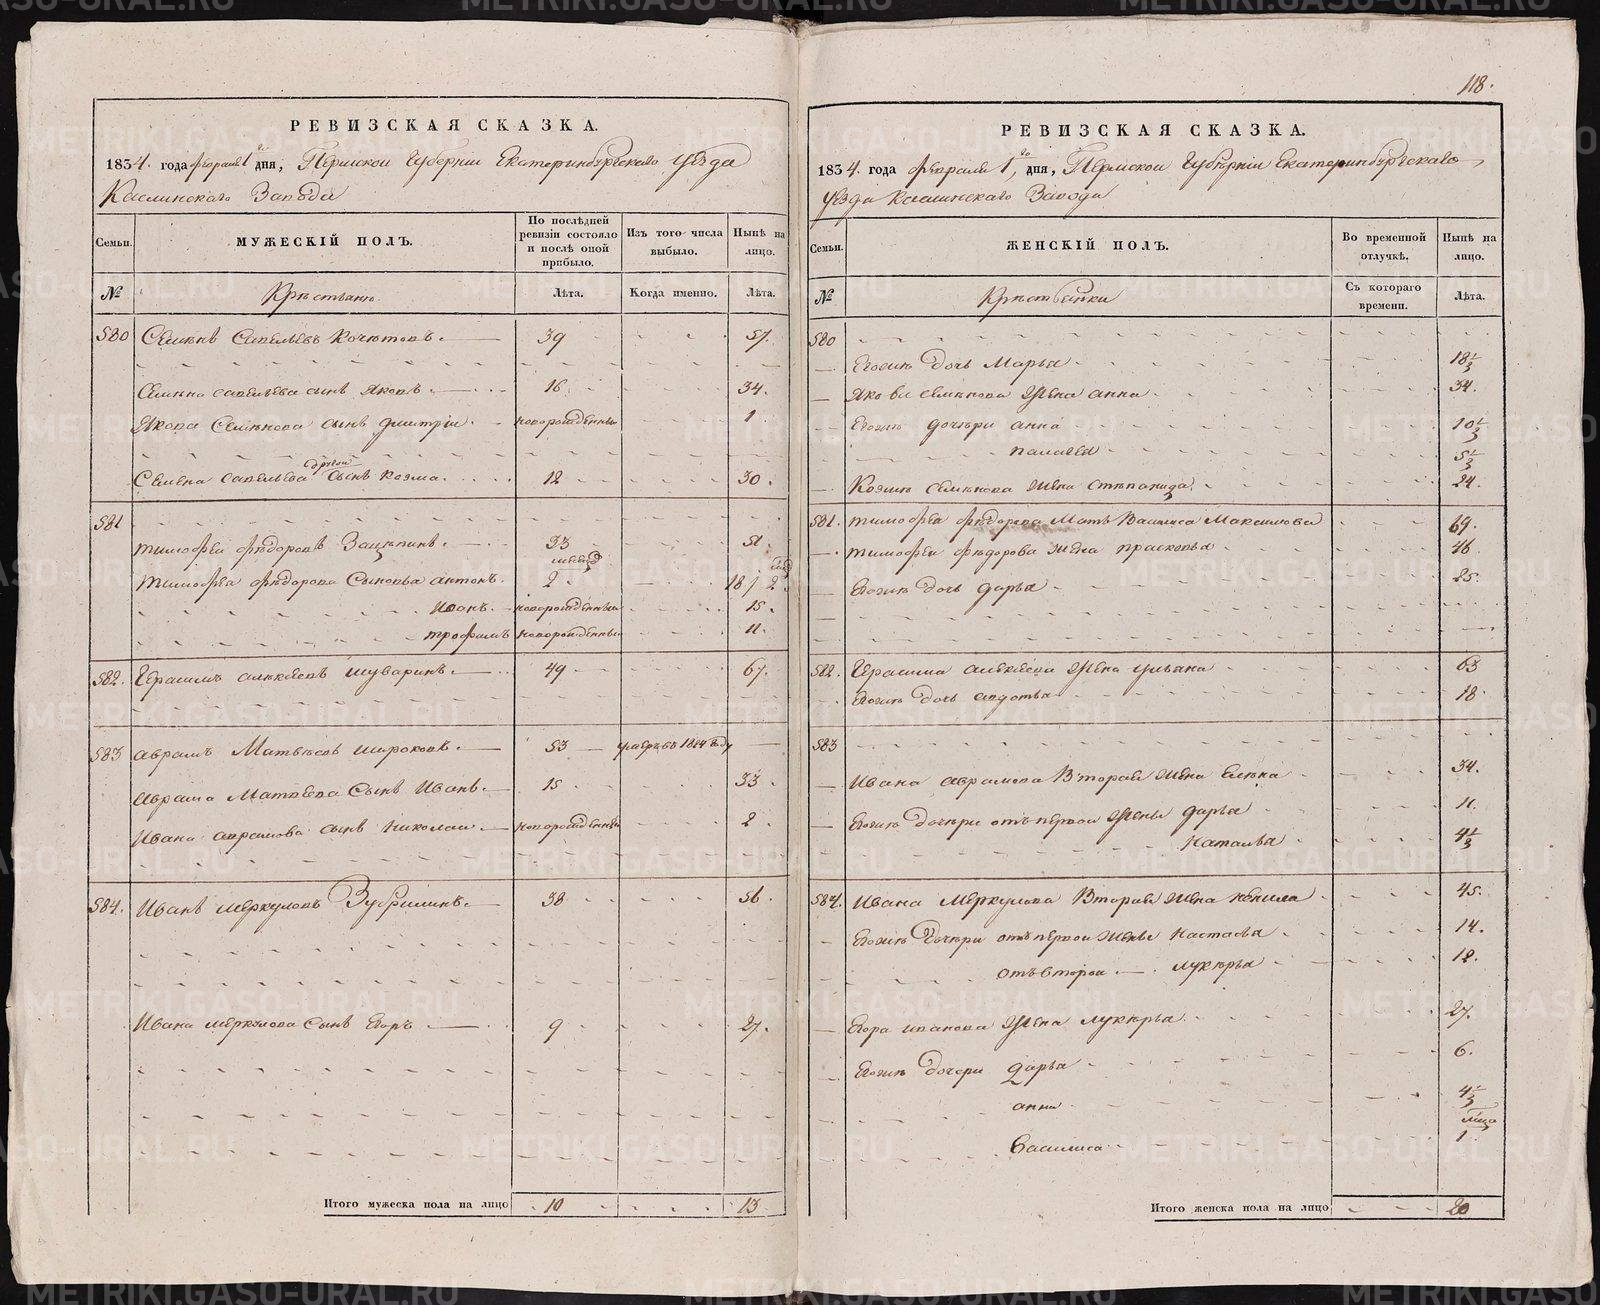 118.
РЕВИЗСКАЯ СКАЗКА.
1834. года февраля 1го дня, Пермской Губерніи Екатеринбургскаго уѣзда
Каслинскаго Завода
Семьи.
МУЖЕСКІЙ ПОЛЪ.
По послѣдней ревизіи состояло и послѣ оной прибыло.
Изъ того числа выбыло.
Нынѣ на лицо.
№
Крестьяне
Лѣта.
Когда именно.
Лѣта.
580 Семенъ Савельевъ 39 57.
Семена Савельева сынъ Яковъ 16 34.
Якова Семенова сынъ Дмитрій новорожденный 1
Семена Савельева другой сынъ Козма 12 30.
581
Тимофей Федоровъ Зацепинъ 33 51.
Тимофея Федорова Сыновья Антонъ. 2 18/2
Иванъ новорожденный 15.
Трофимъ новорожденный 11.
582. Герасимъ Алексеевъ Шуваринъ 49 67.
583 Аврамъ Матвеевъ Широковъ 53 умеръ въ 1824 году
Аврама Матвеева Сынъ Иванъ 15 33.
Ивана Аврамова сынъ Николай новорожденный 2
584. Иванъ Меркуловъ Зубрилинъ 38 56.
Ивана Меркулова Сынъ Егоръ 9 27.
Итого мужеска пола на лицо 10 13.
РЕВИЗСКАЯ СКАЗКА.
1834. года февраля 1го дня, Пермской Губерніи Екатеринбургскаго
уѣзда Каслинскаго Завода
Семьи.
ЖЕНСКІЙ ПОЛЪ.
Во временной отлучкѣ.
Нынѣ на лицо.
№
Крестьянки
Съ котораго времени.
Лѣта.
580
Егожъ дочь Марья 18½
Якова Семенова жена Анна 34.
Егожъ дочери Анна 10½
Палагея 5½
Козмы Семенова жена Степанида 24.
581. Тимофея Федорова Мать Василиса Максимова 69.
Тимофея Федорова жена Прасковья 46
Егожъ дочь Дарья 25.
582. Герасима Алексеева жена Ульяна 63
Егожъ дочь Авдотья 18
583
Ивана Аврамова Вторая жена Елена 34.
Егожъ дочери отъ первой жены Дарья 11.
Наталья 4½
584. Ивана Меркулова Вторая жена 45.
Егожъ дочери отъ первой жены Настасья 14.
отъ второй Лукерья 12.
Егора Иванова жена Лукерья 27.
Егожъ дочери Дарья 6.
Анна 4½
Василиса 1
Итого женска пола на лицо 20
METRIKI.GASO-URAL.RU